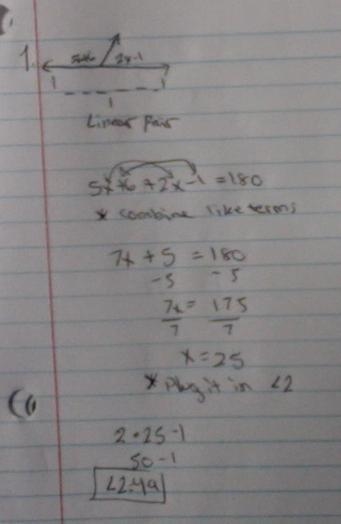 1.
5x+6 2x-1
1
Linear Pair
5x+6+2x-1=180
* combine like terms
7x+5=180
-5 -5
7x = 175
7 7
x=25
* Plug it in ∠2
2•25-1
50-1
∠2=49